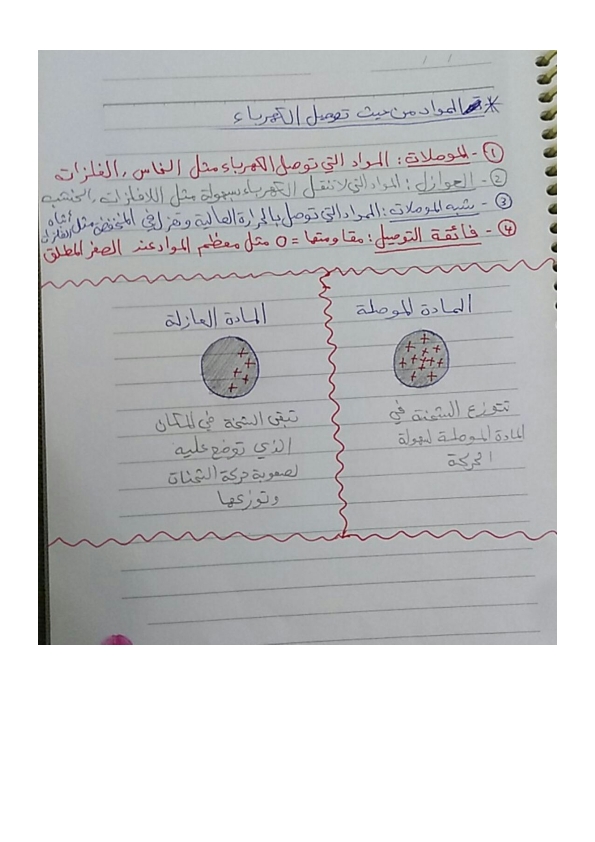 * المواد من حيث توصيل الكهرباء
① - الموصلات : المواد التي توصل الكهرباء مثل النحاس , الفلزات
② - العوازل : المواد التي لا تنقل الكهرباء بسهولة مثل اللافلزات , الخشب
③ - شبه الموصلات : المواد التي توصل بالحرارة العالية وتعزل في المنخفضة مثل أشباه الفلزات
④ - فائقة التوصيل : مقاومتها = 0 مثل معظم المواد عند الصفر المطلق
المادة الموصلة
تتوزع الشحنة في
المادة الموصلة لسهولة
الحركة
المادة العازلة
تبقى الشحنة في المكان
الذي توضع عليه
لصعوبة حركة الشحنات
وتوزعها